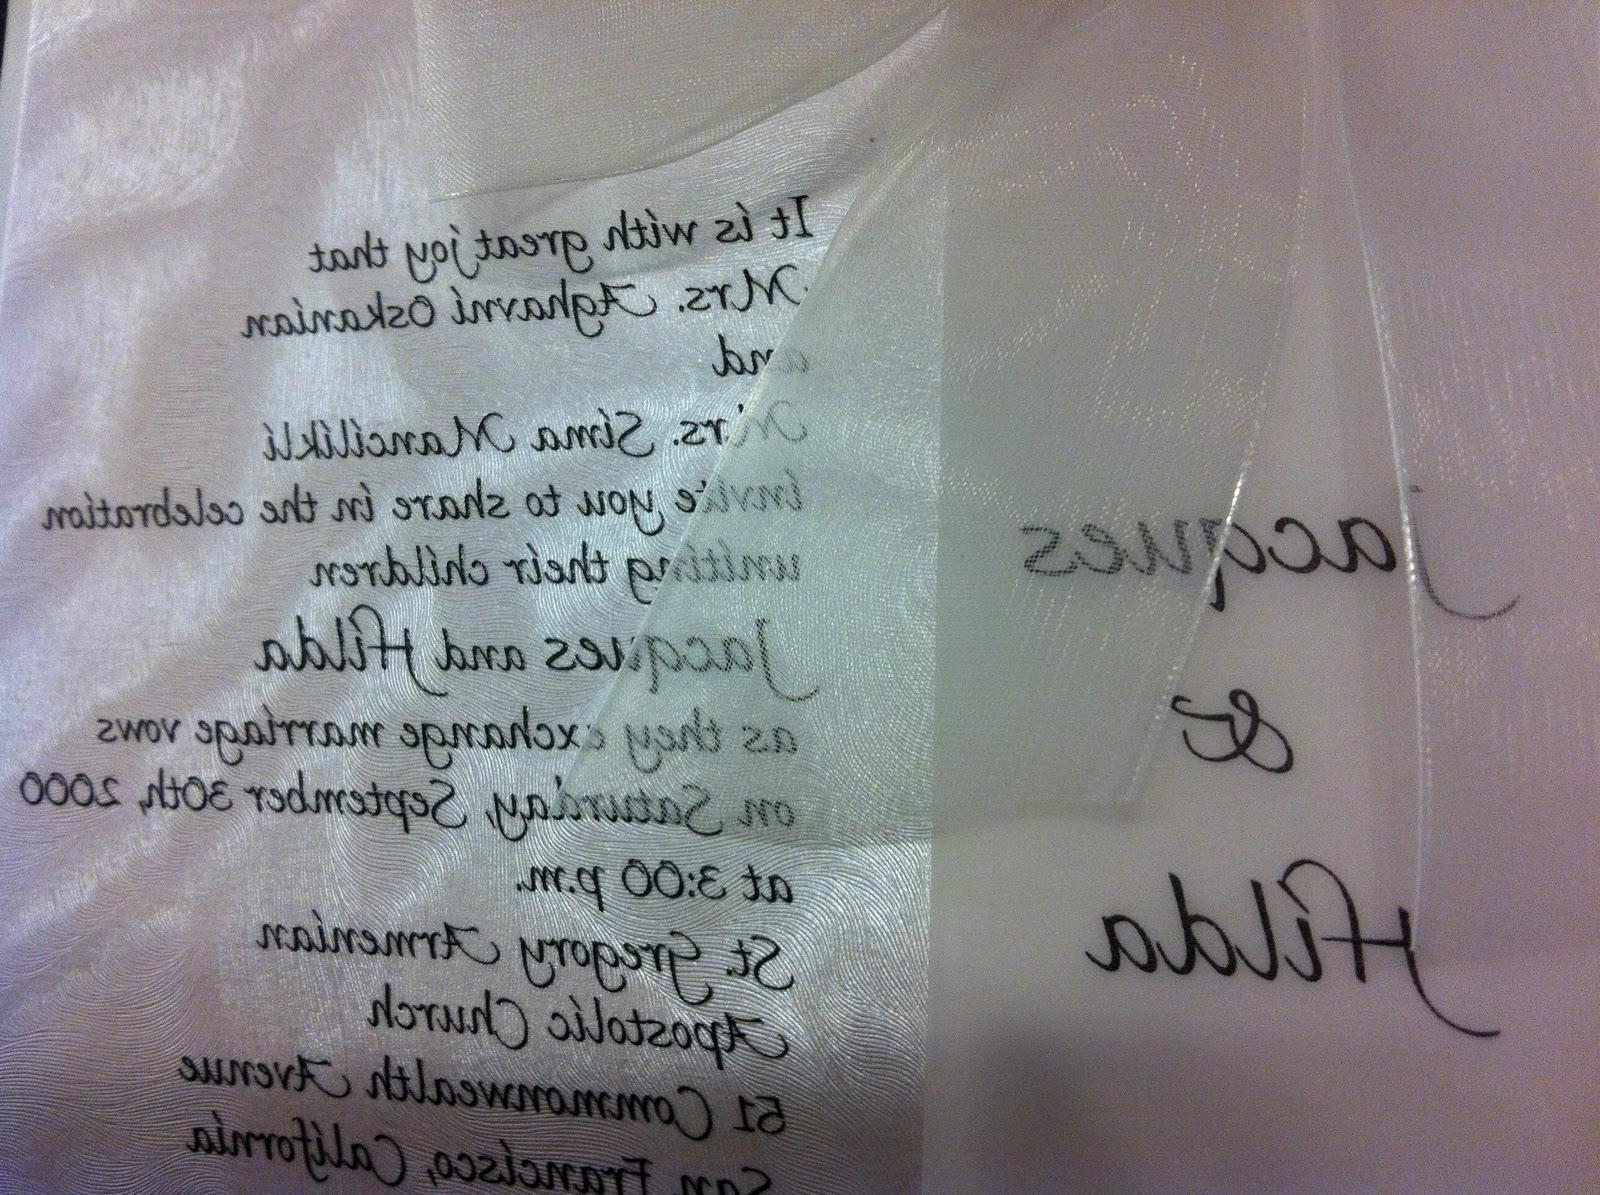 It is with great joy that
Mrs. Aghavni Oskanian
and
Mrs. Sima Mancilikli
invite you to share in the celebration
uniting their children
Jacques and Hilda
as they exchange marriage vows
on Saturday, September 30th, 2000
at 3:00 p.m.
St. Gregory Armenian
Apostolic Church
51 Commonwealth Avenue
San Francisco, California
Jacques
&
Hilda